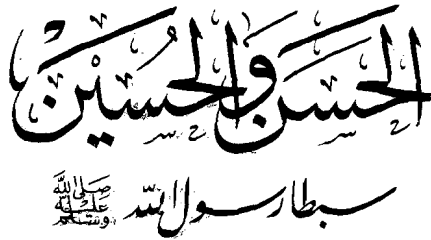 الحسن والحسين
سبطا رسول الله صلى الله عليه وسلم